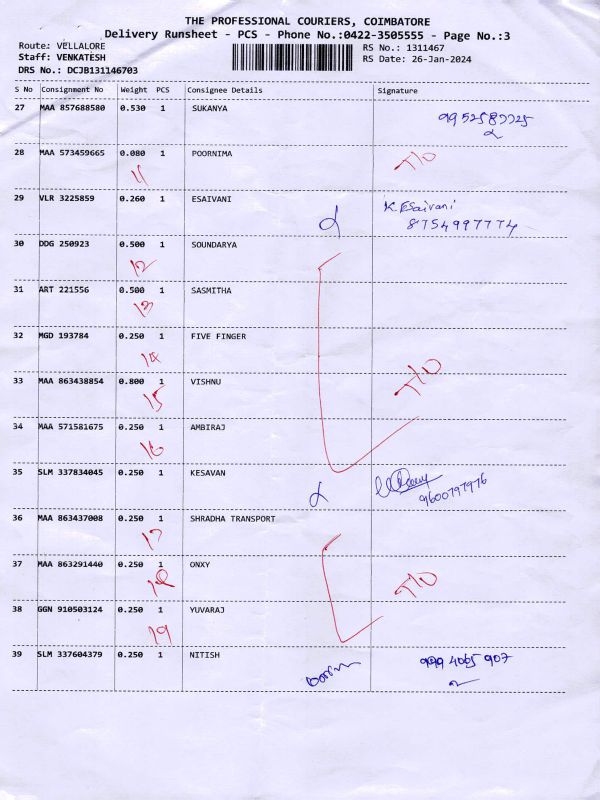 THE PROFESSIONAL COURIERS, COIMBATORE
Delivery Runsheet - PCS - Phone No.:0422-3505555 - Page No.:3
Route: VELLALORE RS No.: 1311467
Staff: VENKATESH RS Date: 26-Jan-2024
DRS No.: DCJB131146703
S No Consignment No Weight PCS Consignee Details Signature
27 MAA 857688580 0.530 1 SUKANYA
28 MAA 573459665 0.080 1 POORNIMA T/O
11
29 VLR 3225859 0.260 1 ESAIVANI K. Esaivani
8754997774
30 DDG 250923 0.500 1 SOUNDARYA
12
31 ART 221556 0.500 1 SASMITHA
13
32 MGD 193784 0.250 1 FIVE FINGER
14
33 MAA 863438854 0.800 1 VISHNU T/O
15
34 MAA 571581675 0.250 1 AMBIRAJ
16
35 SLM 337834045 0.250 1 KESAVAN
9600797976
36 MAA 863437008 0.250 1 SHRADHA TRANSPORT
17
37 MAA 863291440 0.250 1 ONXY T/O
18
38 GGN 910503124 0.250 1 YUVARAJ
19
39 SLM 337604379 0.250 1 NITISH